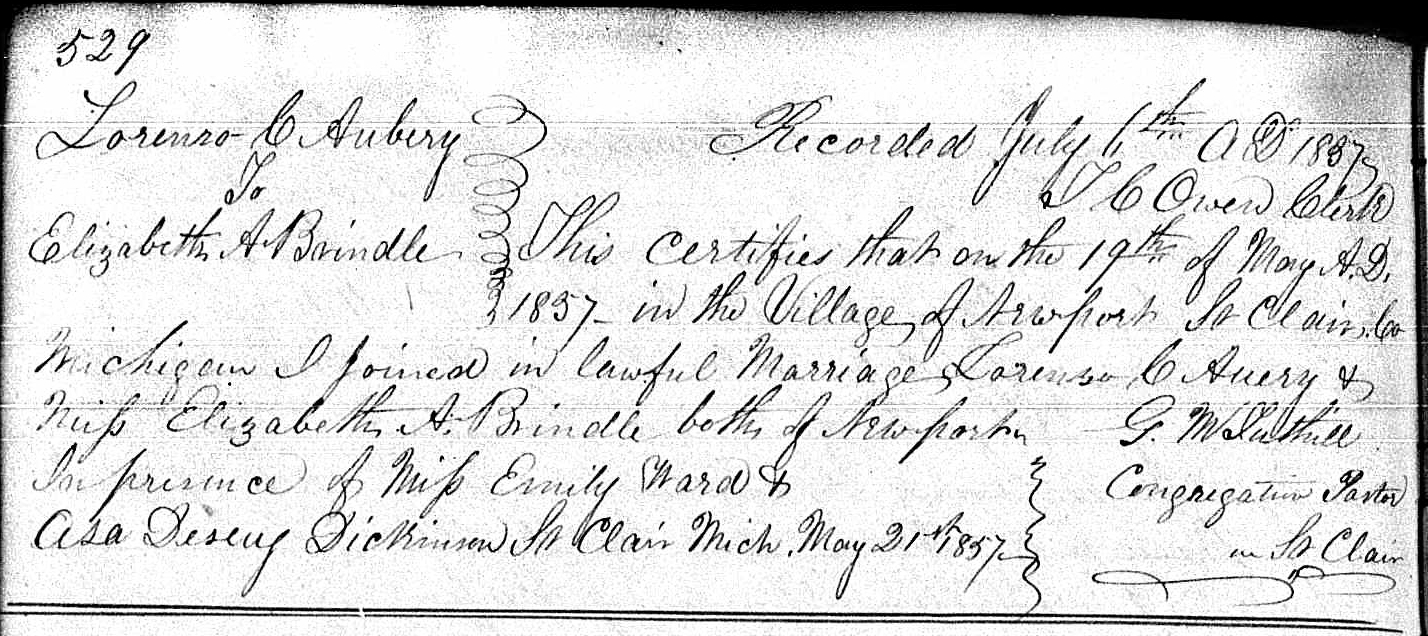 529
Lorenzo C Aubery
Recorded July 6th A D 1857
To
T C Owen Clerk
Elizabeth A. Brindle
This certifies that on the 19th of May A.D.
1857 in the Village of Newport St Clair Co
Michigan I joined in lawful Marriage Lorenzo C Avery &
Miss Elizabeth A. Brindle both of Newport
G. M Tuthill
In presence of Miss Emily Ward &
Congregation Pastor
Asa Dickinson St Clair Mich. May 21st 1857
in St Clair